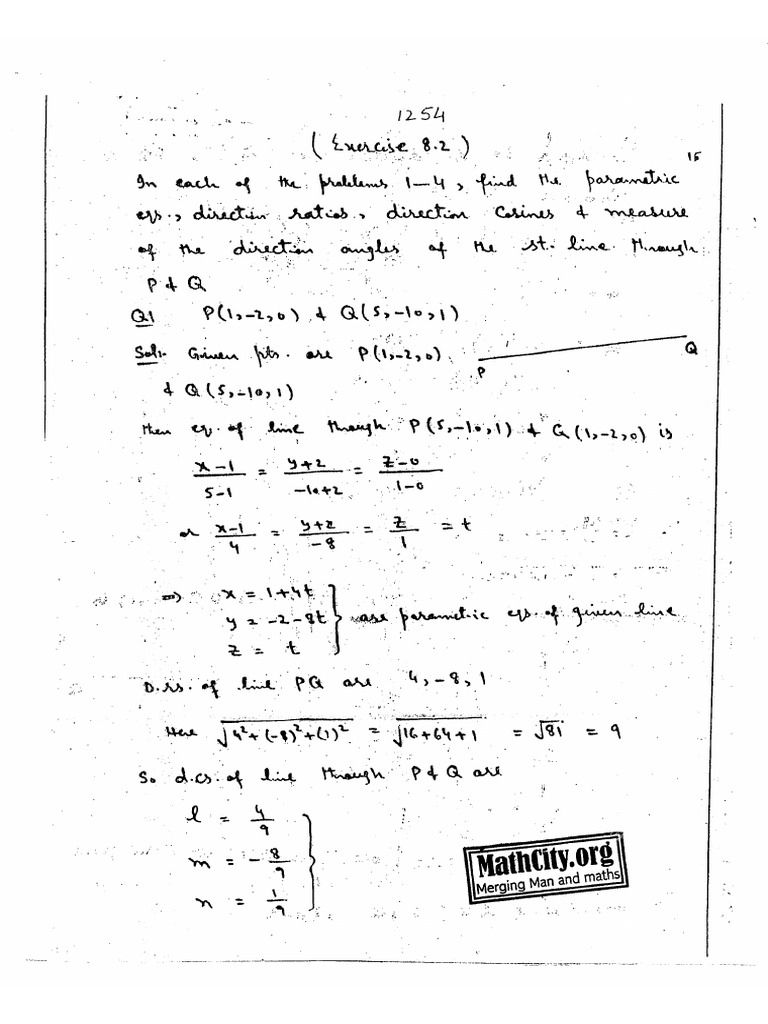 1254
(Exercise 8.2)
15
In each of the problems 1-4, find the parametric
eqs., direction ratios, direction cosines & measure
of the direction angles of the st. line through
P & Q
Q1 P(1,-2,0) & Q(5,-10,1)
Sol:- Given pts. are P(1,-2,0)
& Q(5,-10,1)
P Q
then eq. of line through P(5,-10,1) & Q(1,-2,0) is
x-1/5-1 = y+2/-10+2 = z-0/1-0
or x-1/4 = y+2/-8 = z/1 = t
=> x = 1+4t
y = -2-8t } are parametric eqs. of given line
z = t
D.rs. of line PQ are 4,-8,1
Here √4²+(-8)²+(1)² = √16+64+1 = √81 = 9
So d.cs. of line through P & Q are
l = 4/9
m = -8/9
n = 1/9
MathCity.org
Merging Man and maths